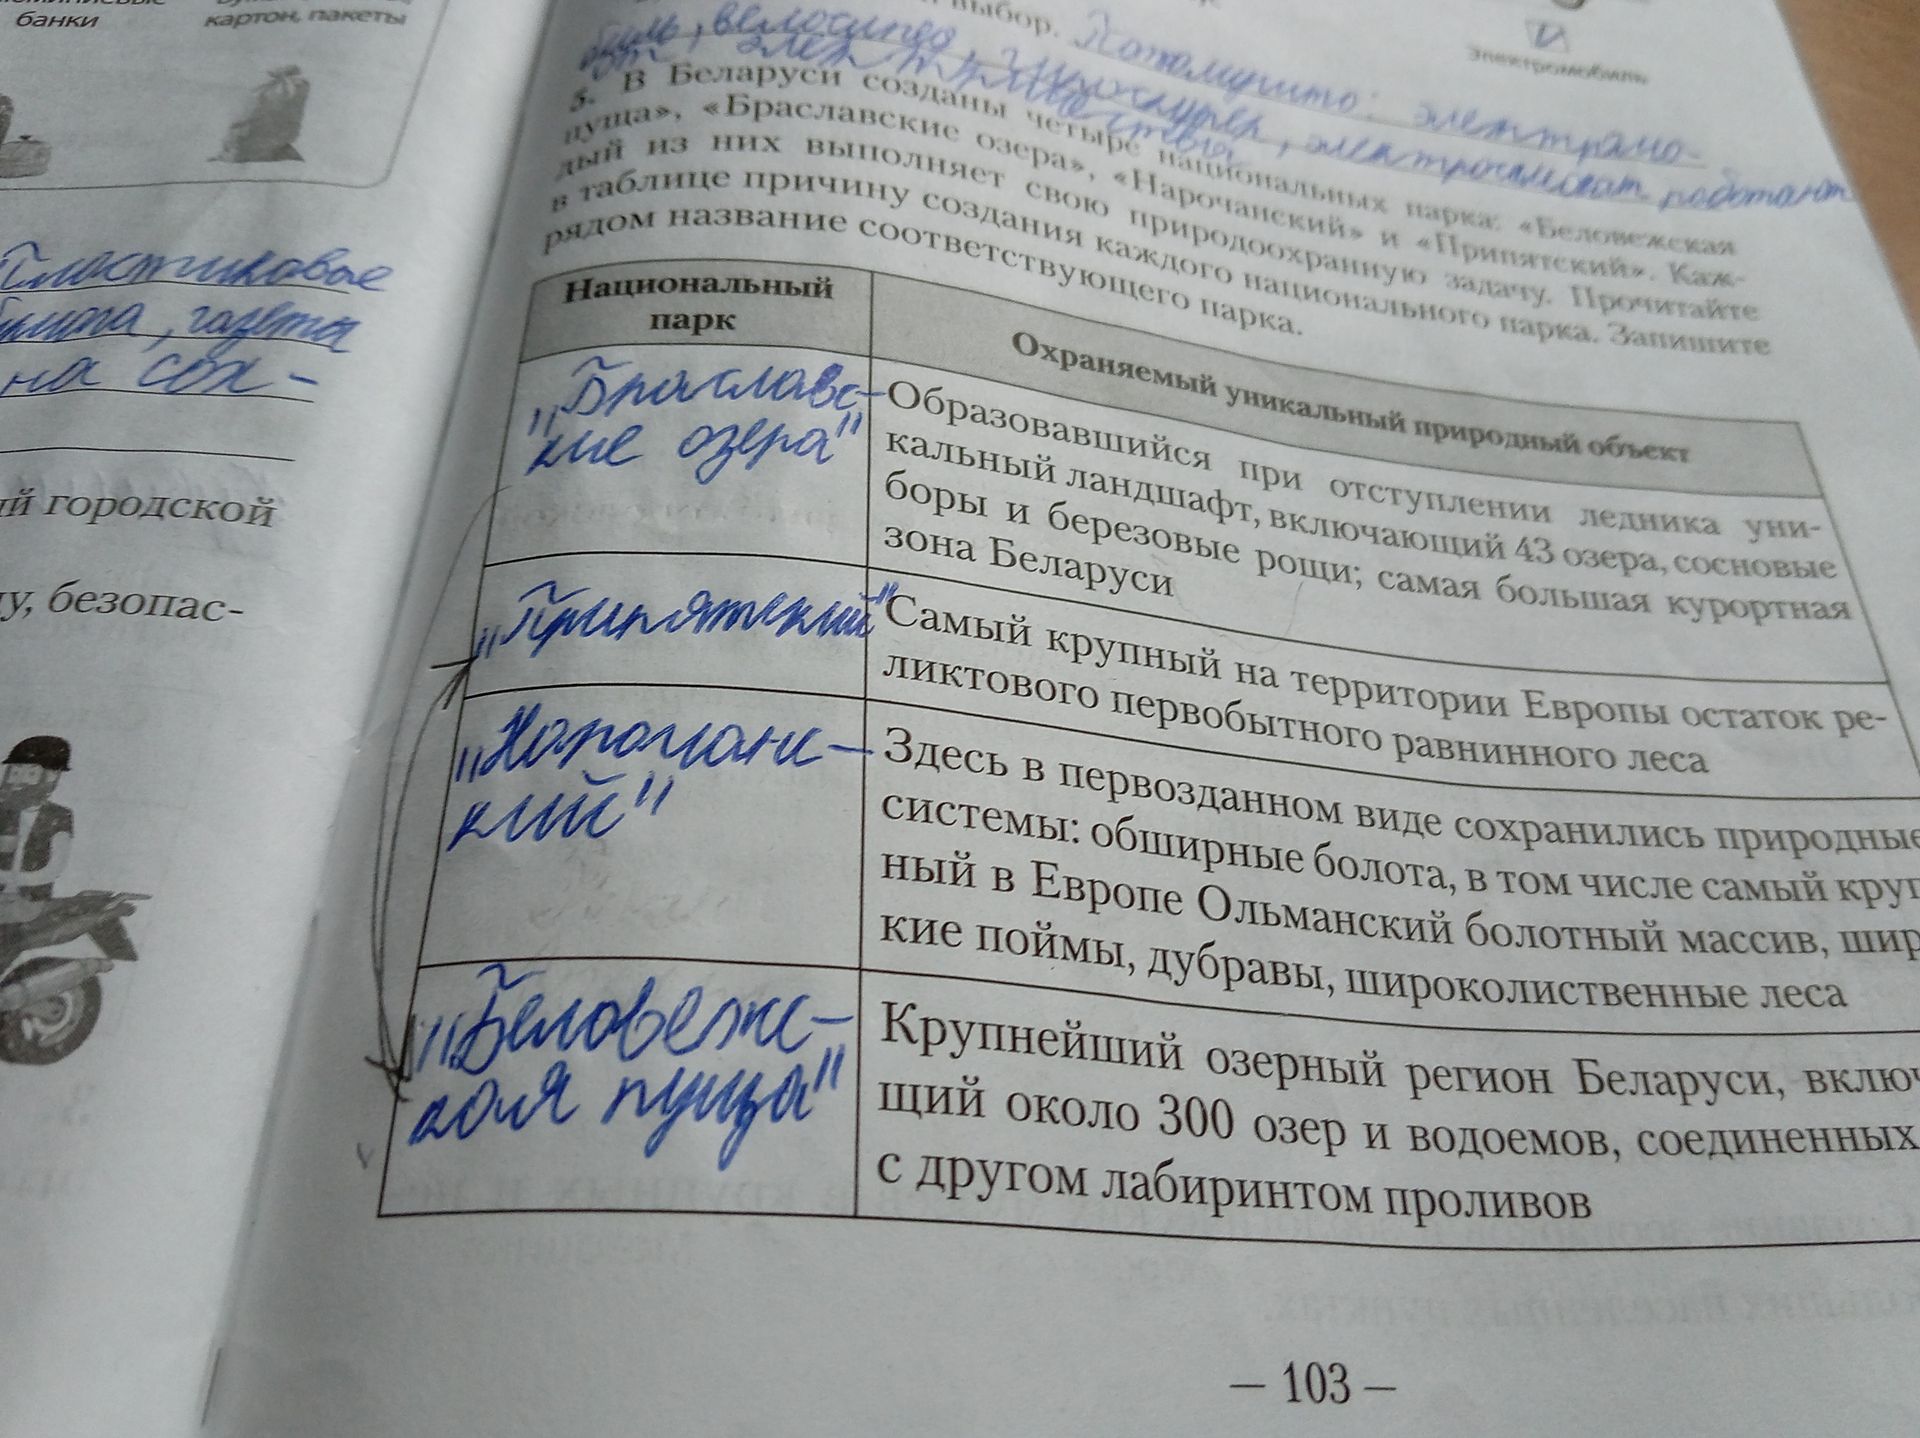 банки
картон, пакеты
Пластиковые
газеты
на сох-
ый городской
безопас-
выбор. электрамо-
велосипед, работают
Электромобиль
5. В Беларуси созданы четыре национальных парка: «Беловежская
пуща», «Браславские озера», «Нарочанский» и «Припятский». Каж-
дый из них выполняет свою природоохранную задачу. Прочитайте
в таблице причину создания каждого национального парка. Запишите
рядом название соответствующего парка.
Национальный
парк
Охраняемый уникальный природный объект
"Браславс-
кие озера"
Образовавшийся при отступлении ледника уни-
кальный ландшафт, включающий 43 озера, сосновые
боры и березовые рощи; самая большая курортная
зона Беларуси
"Припятский"
Самый крупный на территории Европы остаток ре-
ликтового первобытного равнинного леса
"Нарочанс-
кий"
Здесь в первозданном виде сохранились природные
системы: обширные болота, в том числе самый круп
ный в Европе Ольманский болотный массив, шир
кие поймы, дубравы, широколиственные леса
"Беловежс-
кая пуща"
Крупнейший озерный регион Беларуси, включ
щий около 300 озер и водоемов, соединенных
с другом лабиринтом проливов
– 103 –